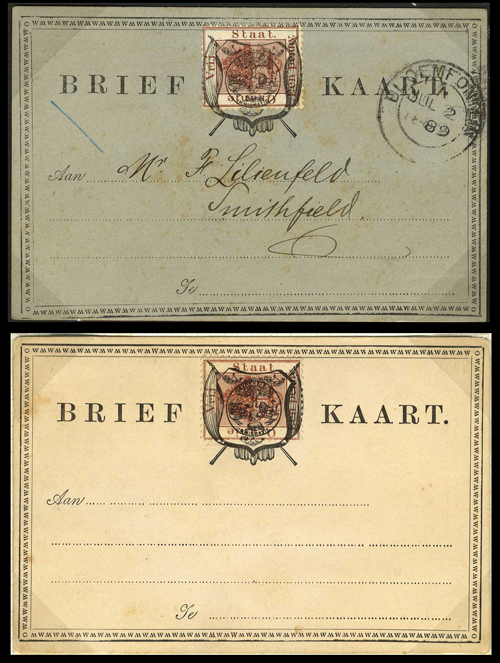 Staat.
BRIEF KAART.
BLOEMFONTEIN
JUL 2
89
Aan Mr F. Lilienfeld
Smithfield.
Te
Staat
BRIEF KAART.
Aan
Te